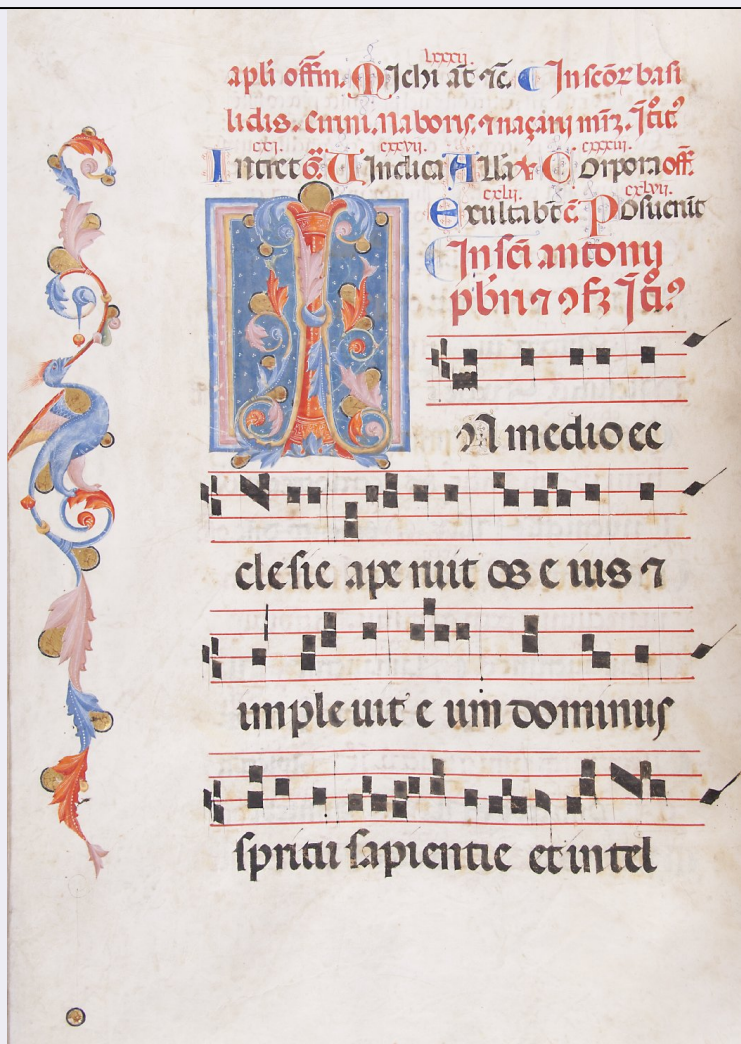 lxxxij.
apli offm. Michi at̄ ⁊c̄. In scōꝝ basi
lidis. Cirini. Naboris. ⁊ naçarij mr̄z. Jt̄t̄.
cxj. cxxvij. cxxxiij.
Intret g̃. Uindica Alla Corpora off.
cxlij. cxlvij.
Exultabt c̄. Posuerūt
In sc̄i antonij
pbri ⁊ ꝯfz Jt̄.
In medio ec
clesie aperuit os eius ⁊
impleuit eum dominus
spiritu sapientie et intel